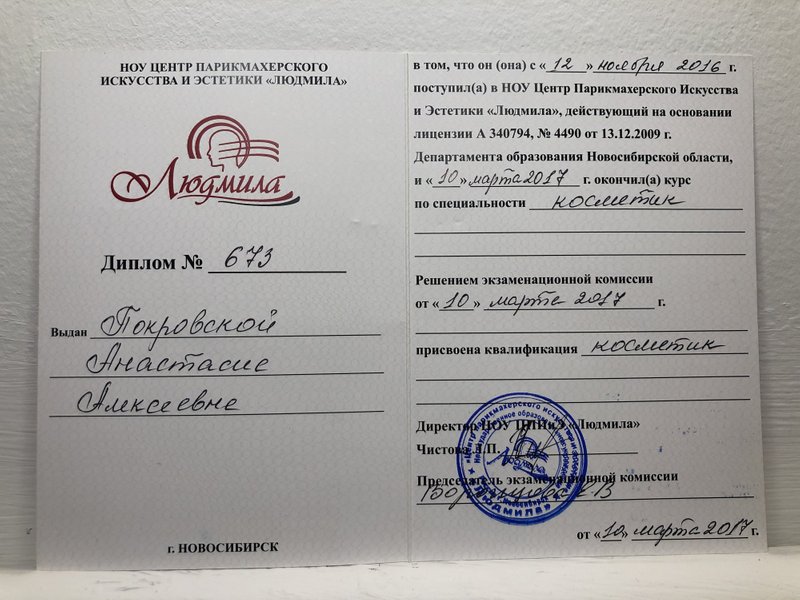 НОУ ЦЕНТР ПАРИКМАХЕРСКОГО
ИСКУССТВА И ЭСТЕТИКИ «ЛЮДМИЛА»
Людмила
Диплом № 673
Выдан Покровской
Анастасие
Алексеевне
г. НОВОСИБИРСК
в том, что он (она) с «12» ноября 2016 г.
поступил(а) в НОУ Центр Парикмахерского Искусства
и Эстетики «Людмила», действующий на основании
лицензии А 340794, № 4490 от 13.12.2009 г.
Департамента образования Новосибирской области,
и «10» марта 2017 г. окончил(а) курс
по специальности косметик
Решением экзаменационной комиссии
от «10» марта 2017 г.
присвоена квалификация косметик
Директор НОУ ЦПИиЭ «Людмила»
Чистова Л.П.
Председатель экзаменационной комиссии
«Центр парикмахерского искусства и эстетики
«Людмила»
Людмила
г. Новосибирск
от «10» марта 2017 г.